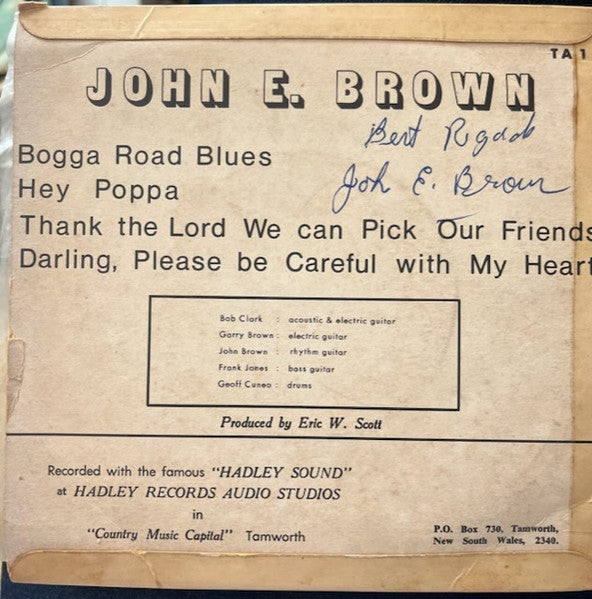 TA 1
JOHN E. BROWN
Bert
John E. Brown
Bogga Road Blues
Hey Poppa
Thank the Lord We can Pick Our Friends
Darling, Please be Careful with My Heart
Bob Clark : acoustic & electric guitar
Garry Brown : electric guitar
John Brown : rhythm guitar
Frank Jones : bass guitar
Geoff Cuneo : drums
Produced by Eric W. Scott
Recorded with the famous "HADLEY SOUND"
at HADLEY RECORDS AUDIO STUDIOS
in
"Country Music Capital" Tamworth
P.O. Box 730, Tamworth,
New South Wales, 2340.